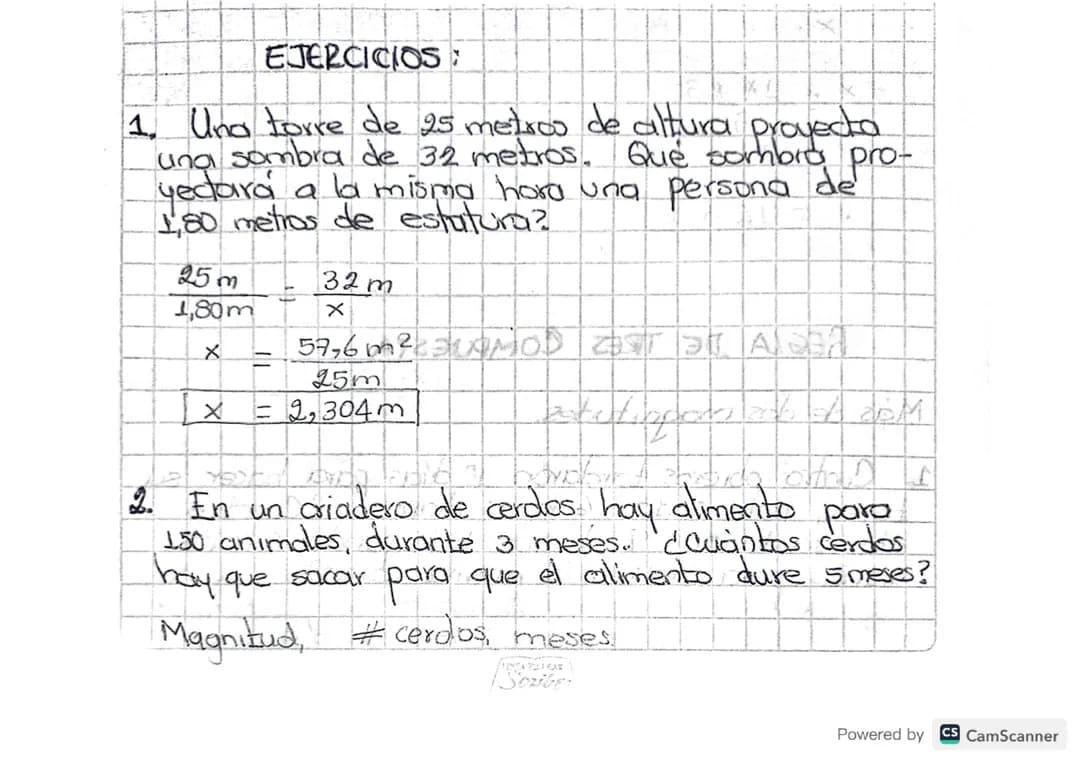 EJERCICIOS:
1. Una torre de 25 metros de altura proyecta
una sombra de 32 metros. Qué sombra pro-
yectará a la misma hora una persona de
1,80 metros de estatura?
25m = 32m
1,80m x
x = 57,6 m²
25m
x = 2,304m
2. En un criadero de cerdos hay alimento para
150 animales, durante 3 meses. ¿Cuántos cerdos
hay que sacar para que el alimento dure 5 meses?
Magnitud, # cerdos, meses.
Scribe
Powered by CS CamScanner